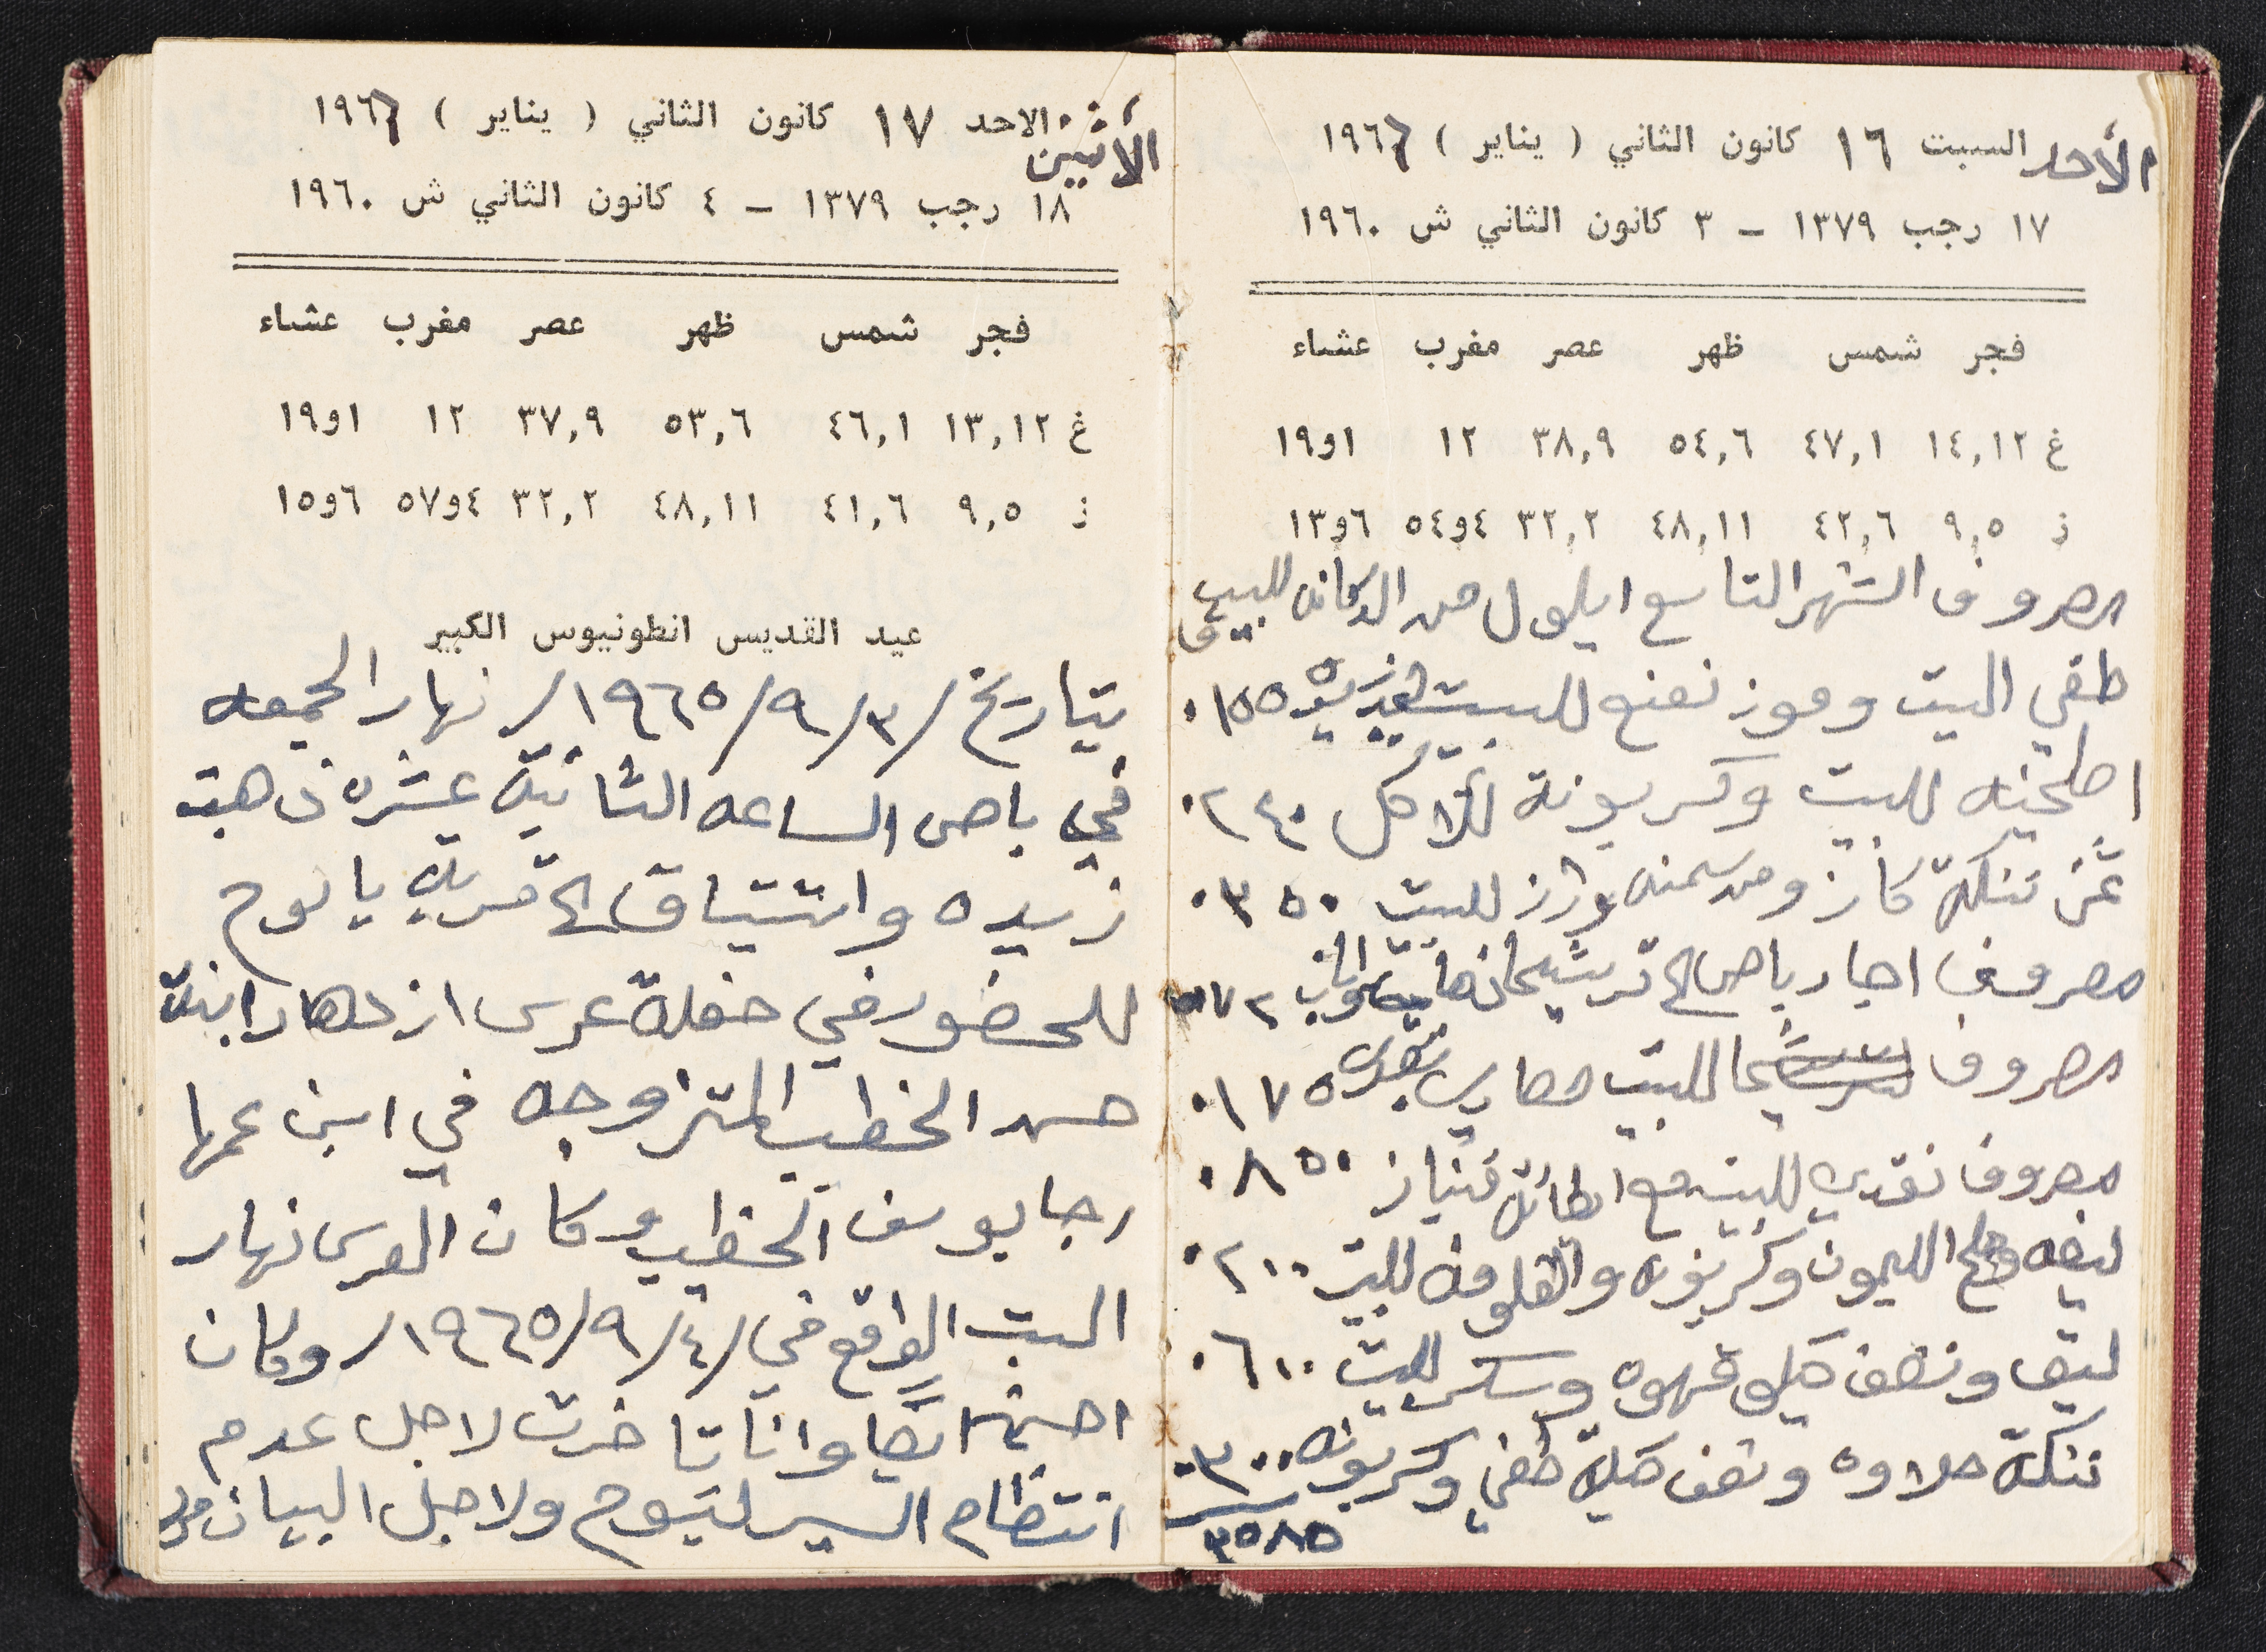 الأحد السبت ١٦ كانون الثاني ( يناير ) ١٩٦٦
١٧ رجب ١٣٧٩ – ٣ كانون الثاني ش ١٩٦٠
فجر شمس ظهر عصر مغرب عشاء
غ ١٤,١٢ ٤٧,١ ٥٤,٦ ٣٨,٩ ١٢ ١و١٩
ز ٩,٥ ٤٢,٦ ٤٨,١١ ٣٢,٢ ٤و٥٤ ٦و١٣
مصروف الشهر التاسع ايلول من الدكانه للبيت
طقي البيت وموز نعنع للبيت ٠١٥٥
اطحينه للبيت وكربونة للاكل ٠٢٤٠
ثمن تنكة كاز ومد سمنه ورز للبيت ٠٣٥٠
مصروف اجار باص الى ترشيحا
مصروف للبيت مصاريف نقدي ٠١٧٥
مصروف نقدي للبيت مع ٠٨٥٠
ليفه وملح الليمون وكربونه للبيت ٠٢٠٠
ليتف ونصف كيلو قهوه وسكر للبيت ٠٦٠٠
تنكة حلاوه ونصف كيلة وكربونه ٠٣٠٠
٣٥٨٥
الأثنين الاحد ١٧ كانون الثاني ( يناير ) ١٩٦٦
١٨ رجب ١٣٧٩ – ٤ كانون الثاني ش ١٩٦٠
فجر شمس ظهر عصر مغرب عشاء
غ ١٣,١٢ ٤٦,١ ٥٣,٦ ٣٧,٩ ١٢ ١و١٩
ز ٩,٥ ٤١,٦ ٤٨,١١ ٣٢,٢ ٤و٥٧ ٦و١٥
عيد القديس انطونيوس الكبير
بتاريخ /٣/٩/١٩٦٥/ نهار الجمعه
في باص الساعه الثانية عشره ذهبت
زبيده واشتياق الى قرية يانوح
للحضور في حفلة عرس ازدهار ابنة
حسن الخطيب المتزوجه في ابن عمها
رجا يوسف الخطيب وكان العرس نهار
السبت الواقع في /٤/٩/١٩٦٥/ وكان
وانا تاخرت لاجل عدم
انتظام السير ليانوح ولاجل البيان